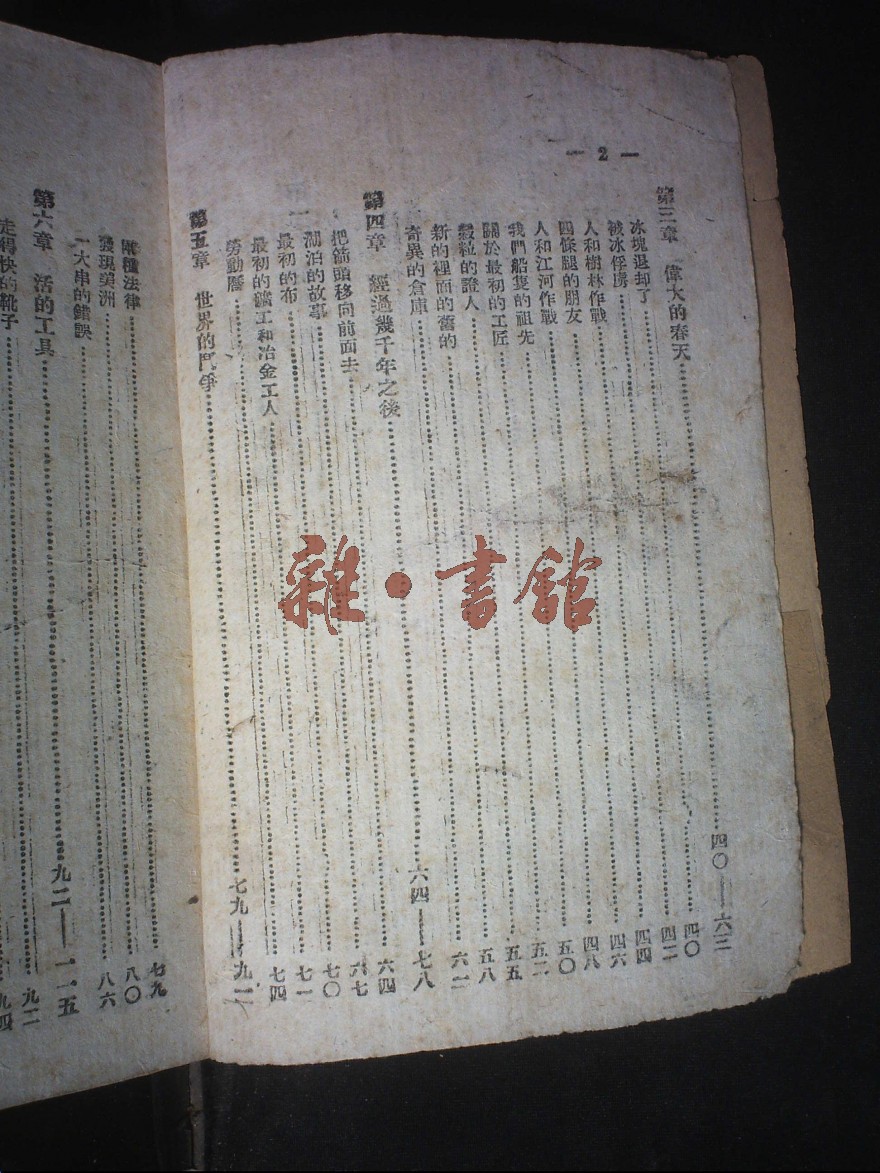 — 2 —
第三章 偉大的春天……四〇——六三
冰塊退却了……四〇
被冰俘虜……四二
人和樹林作戰……四四
四條腿的朋友……四六
人和江河作戰……四八
我們船隻的祖先……五〇
關於最初的工匠……五二
穀粒的證人……五五
新的裡面的舊的……五八
奇異的倉庫……六二
第四章 經過幾千年之後……六四——七八
把箭頭移向前面去……六四
湖泊的故事……六七
最初的布……七〇
最初的鑛工和冶金工人……七一
勞動曆……七四
第五章 世界的鬥爭……七九——九
兩種法律……七九
發現美洲……八〇
一大串的錯誤……八六
第六章 活的工具……九二——一一五
走得快的靴子……九二
九四
雜·書館